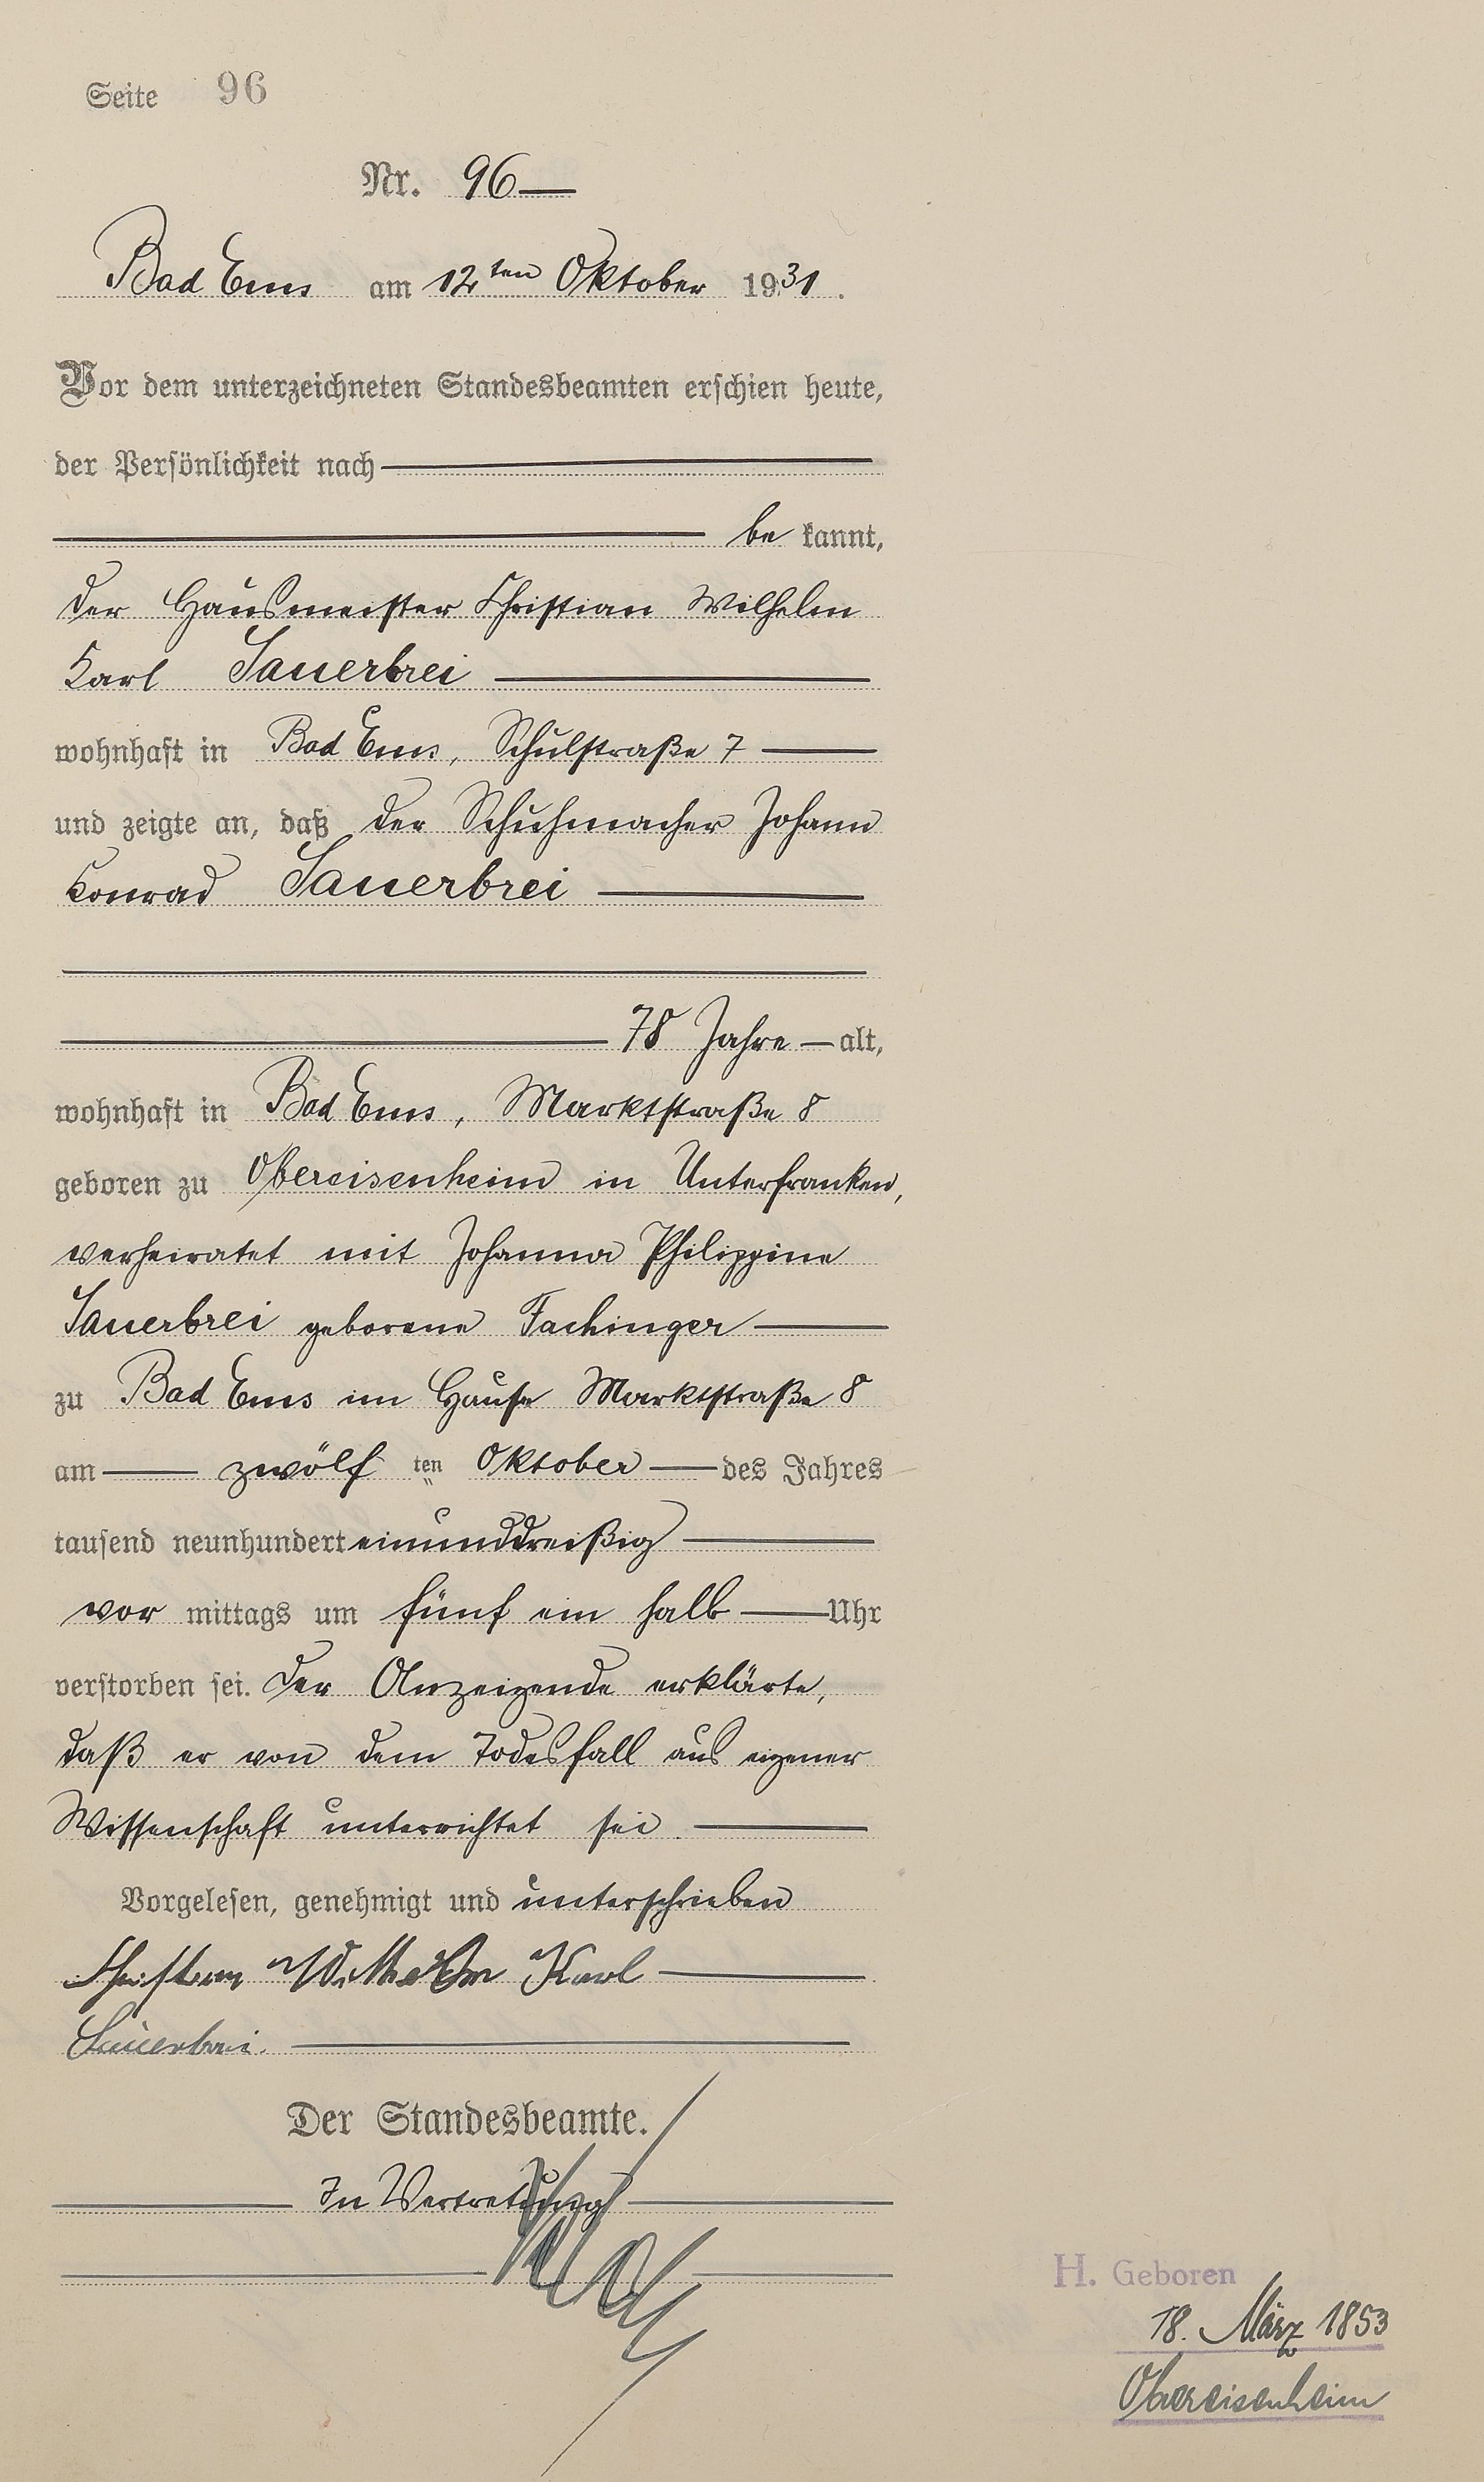 Seite 96
Nr. 96
Bad Ems am 12ten Oktober 1931.
Vor dem unterzeichneten Standesbeamten erschien heute,
der Persönlichkeit nach
be kannt,
der Hausmeister Christian Wilhelm
Karl Sauerbrei
wohnhaft in Bad Ems, Schulstraße 7
und zeigte an, daß der Schuhmacher Johann
Konrad Sauerbrei
78 Jahre alt,
wohnhaft in Bad Ems, Marktstraße 8
geboren zu Obereisenheim in Unterfranken,
verheiratet mit Johanna Philippine
Sauerbrei geborene Fachinger
zu Bad Ems im Hause Marktstraße 8
am zwölf ten Oktober des Jahres
tausend neunhundert einunddreißig
vor mittags um fünf ein halb Uhr
verstorben sei. Der Anzeigende erklärte,
daß er von dem Todesfall aus eigener
Wissenschaft unterrichtet sei.
Vorgelesen, genehmigt und unterschrieben
Christian Wilhelm Karl
Sauerbrei.
Der Standesbeamte.
In Vertretung
H. Geboren
18. März 1853
Obereisenheim